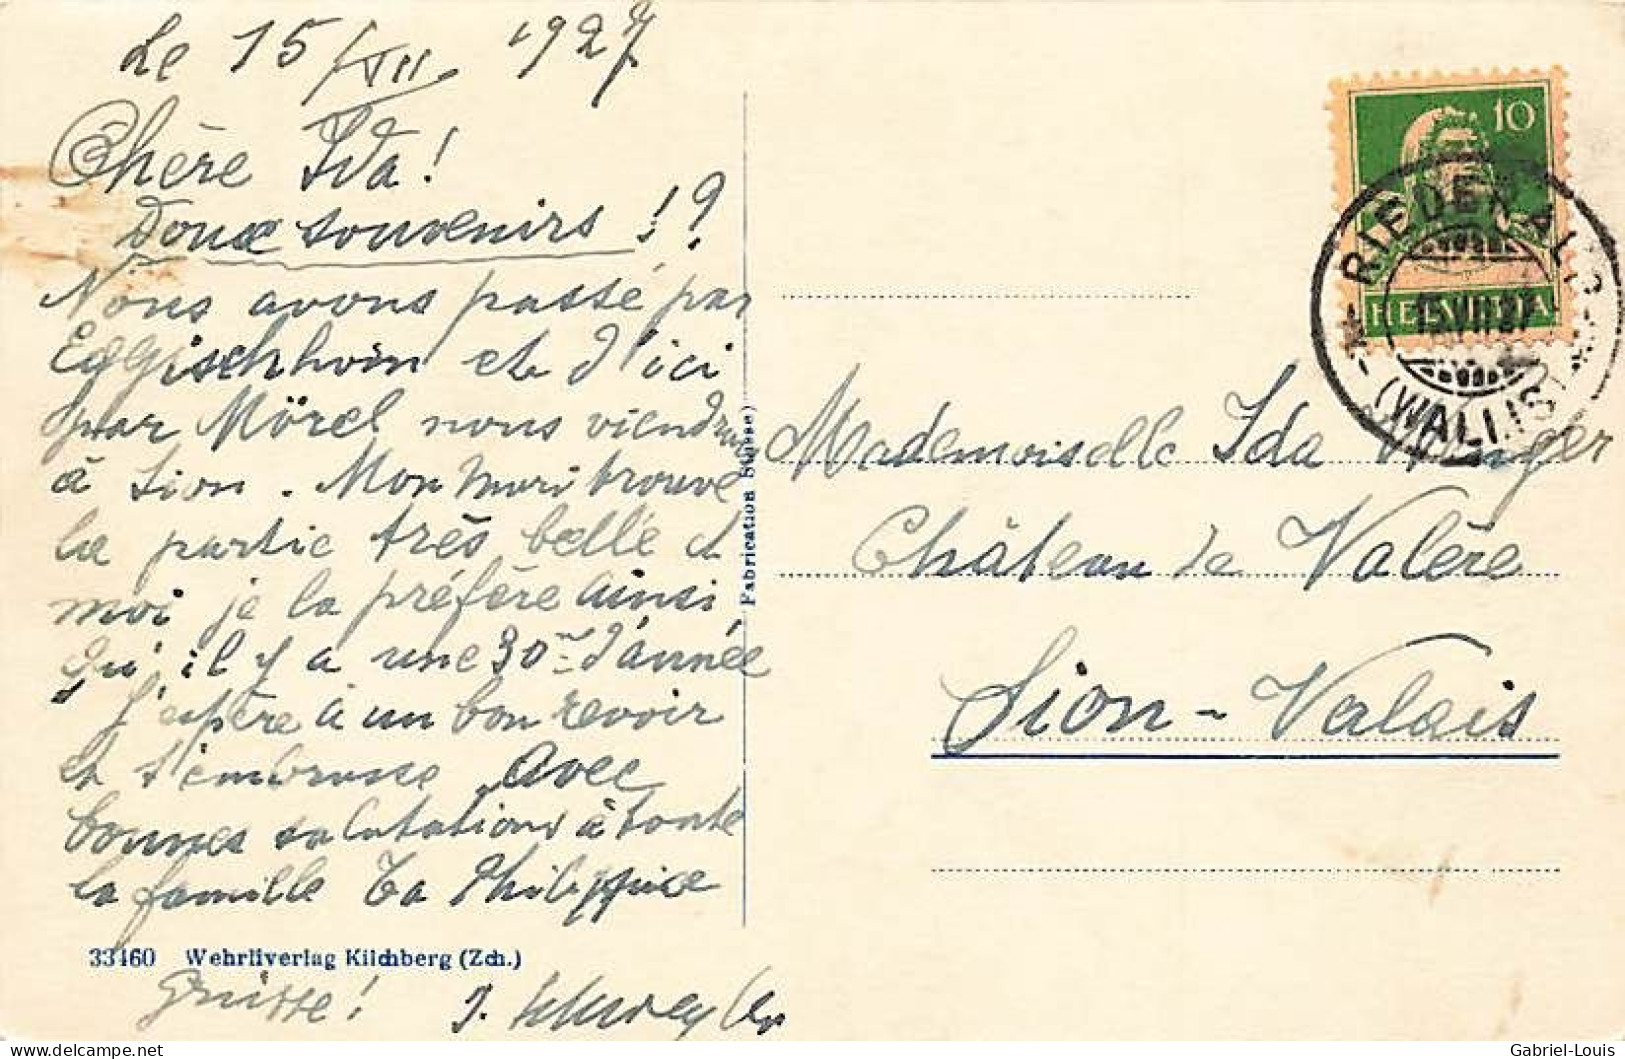 Le 15/VII 1927
Chère Ida!
Doux souvenirs!?
Nous avons passé par
Eggischhorn et d'ici
par Mörel nous viendrons
à Sion. Mon mari trouve
la partie très belle et
moi je la préfère ainsi
qu'il y a une 30ne d'année
J'espère à un bon revoir
et t'embrasse avec
bonnes salutations à toute
la famille Ta Philippine
33460 Wehrliverlag Kilchberg (Zch.)
Grüsse! J.
Fabrication Suisse)
10
HELVETIA
RIEDERALP
15.VII.27
(WALLIS)
Mademoiselle Ida
Château de Valère
Sion - Valais
Gabriel-Louis
delcampe.net